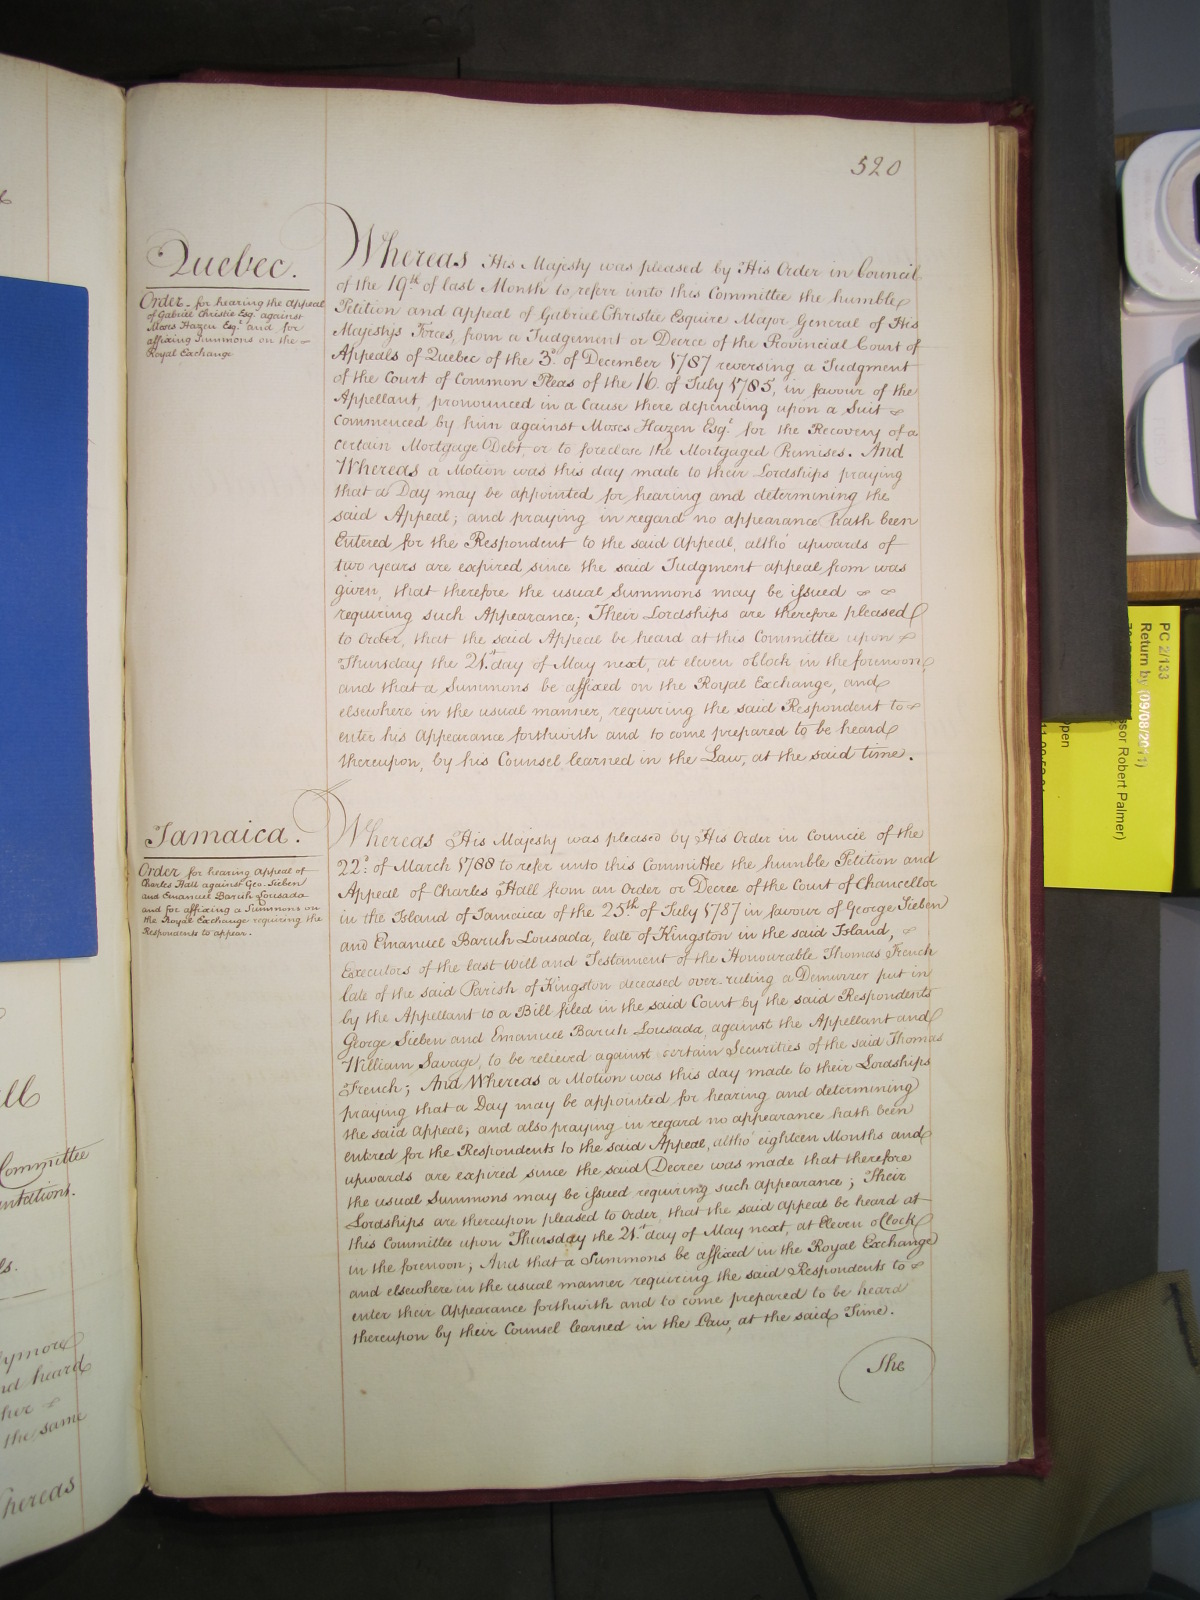 520
Quebec.
Order for hearing the appeal
of Gabriel Christie Esq. against
Moses Hazen Esqr. and for
affixing Summons on the
Royal Exchange
Whereas His Majesty was pleased by His Order in Council
of the 19th of last Month to referr unto this Committee the humble
Petition and appeal of Gabriel Christie Esquire Major General of His
Majesty's Forces, from a Judgement or Decree of the Provincial Court of
Appeals of Quebec of the 3d. of December 1787 reversing a Judgment
of the Court of Common Pleas of the 16 of July 1785, in favour of the
Appellant, pronounced in a Cause there depending upon a Suit
commenced by him against Moses Hazen Esqr. for the Recovery of a
certain Mortgage Debt or to foreclose the Mortgaged Premises. And
Whereas a Motion was this day made to their Lordships praying
that a Day may be appointed for hearing and determining the
said Appeal; and praying in regard no appearance hath been
Entered for the Respondent to the said appeal, altho' upwards of
two years are expired since the said Judgment appeal from was
given, that therefore the usual Summons may be issued
requiring such Appearance; Their Lordships are therefore pleased
to Order, that the said Appeal be heard at this Committee upon
Thursday the 21st day of May next, at eleven oClock in the forenoon,
and that a Summons be affixed on the Royal Exchange, and
elsewhere in the usual manner, requiring the said Respondent to
enter his Appearance forthwith and to come prepared to be heard
thereupon, by his Counsel learned in the Law, at the said time.
Jamaica.
Order for hearing appeal of
Charles Hall against Geo. Sieben
and Emanuel Baruh Lousada
and for affixing a Summons on
the Royal Exchange requiring the
Respondents to appear.
Whereas His Majesty was pleased by His Order in Council of the
22d. of March 1788 to refer unto this Committee the humble Petition and
Appeal of Charles Hall from an Order or Decree of the Court of Chancellor
in the Island of Jamaica of the 25th of July 1787 in favour of George Sieben
and Emanuel Baruh Lousada, late of Kingston in the said Island,
Executors of the last Will and Testament of the Honourable Thomas French
late of the said Parish of Kingston deceased over-ruling a Demurrer put in
by the Appellant to a Bill filed in the said Court by the said Respondents
George Sieben and Emanuel Baruh Lousada, against the Appellant and
William Savage, to be relieved against certain Securities of the said Thomas
French; And Whereas a Motion was this day made to their Lordships
praying that a Day may be appointed for hearing and determining
the said appeal; and also praying in regard no appearance hath been
entered for the Respondents to the said Appeal, altho' eighteen Months and
upwards are expired since the said Decree was made that therefore
the usual Summons may be issued requiring such appearance; Their
Lordships are thereupon pleased to Order, that the said appeal be heard at
this Committee upon Thursday the 21st day of May next, at Eleven oClock
in the forenoon; And that a Summons be affixed in the Royal Exchange
and elsewhere in the usual manner requiring the said Respondents to
enter their Appearance forthwith and to come prepared to be heard
thereupon by their Counsel learned in the Law, at the said Time.
The
Committee
the same
Whereas
PC 2/133
Return by (09/08/2011)
ssor Robert Palmer)
pen